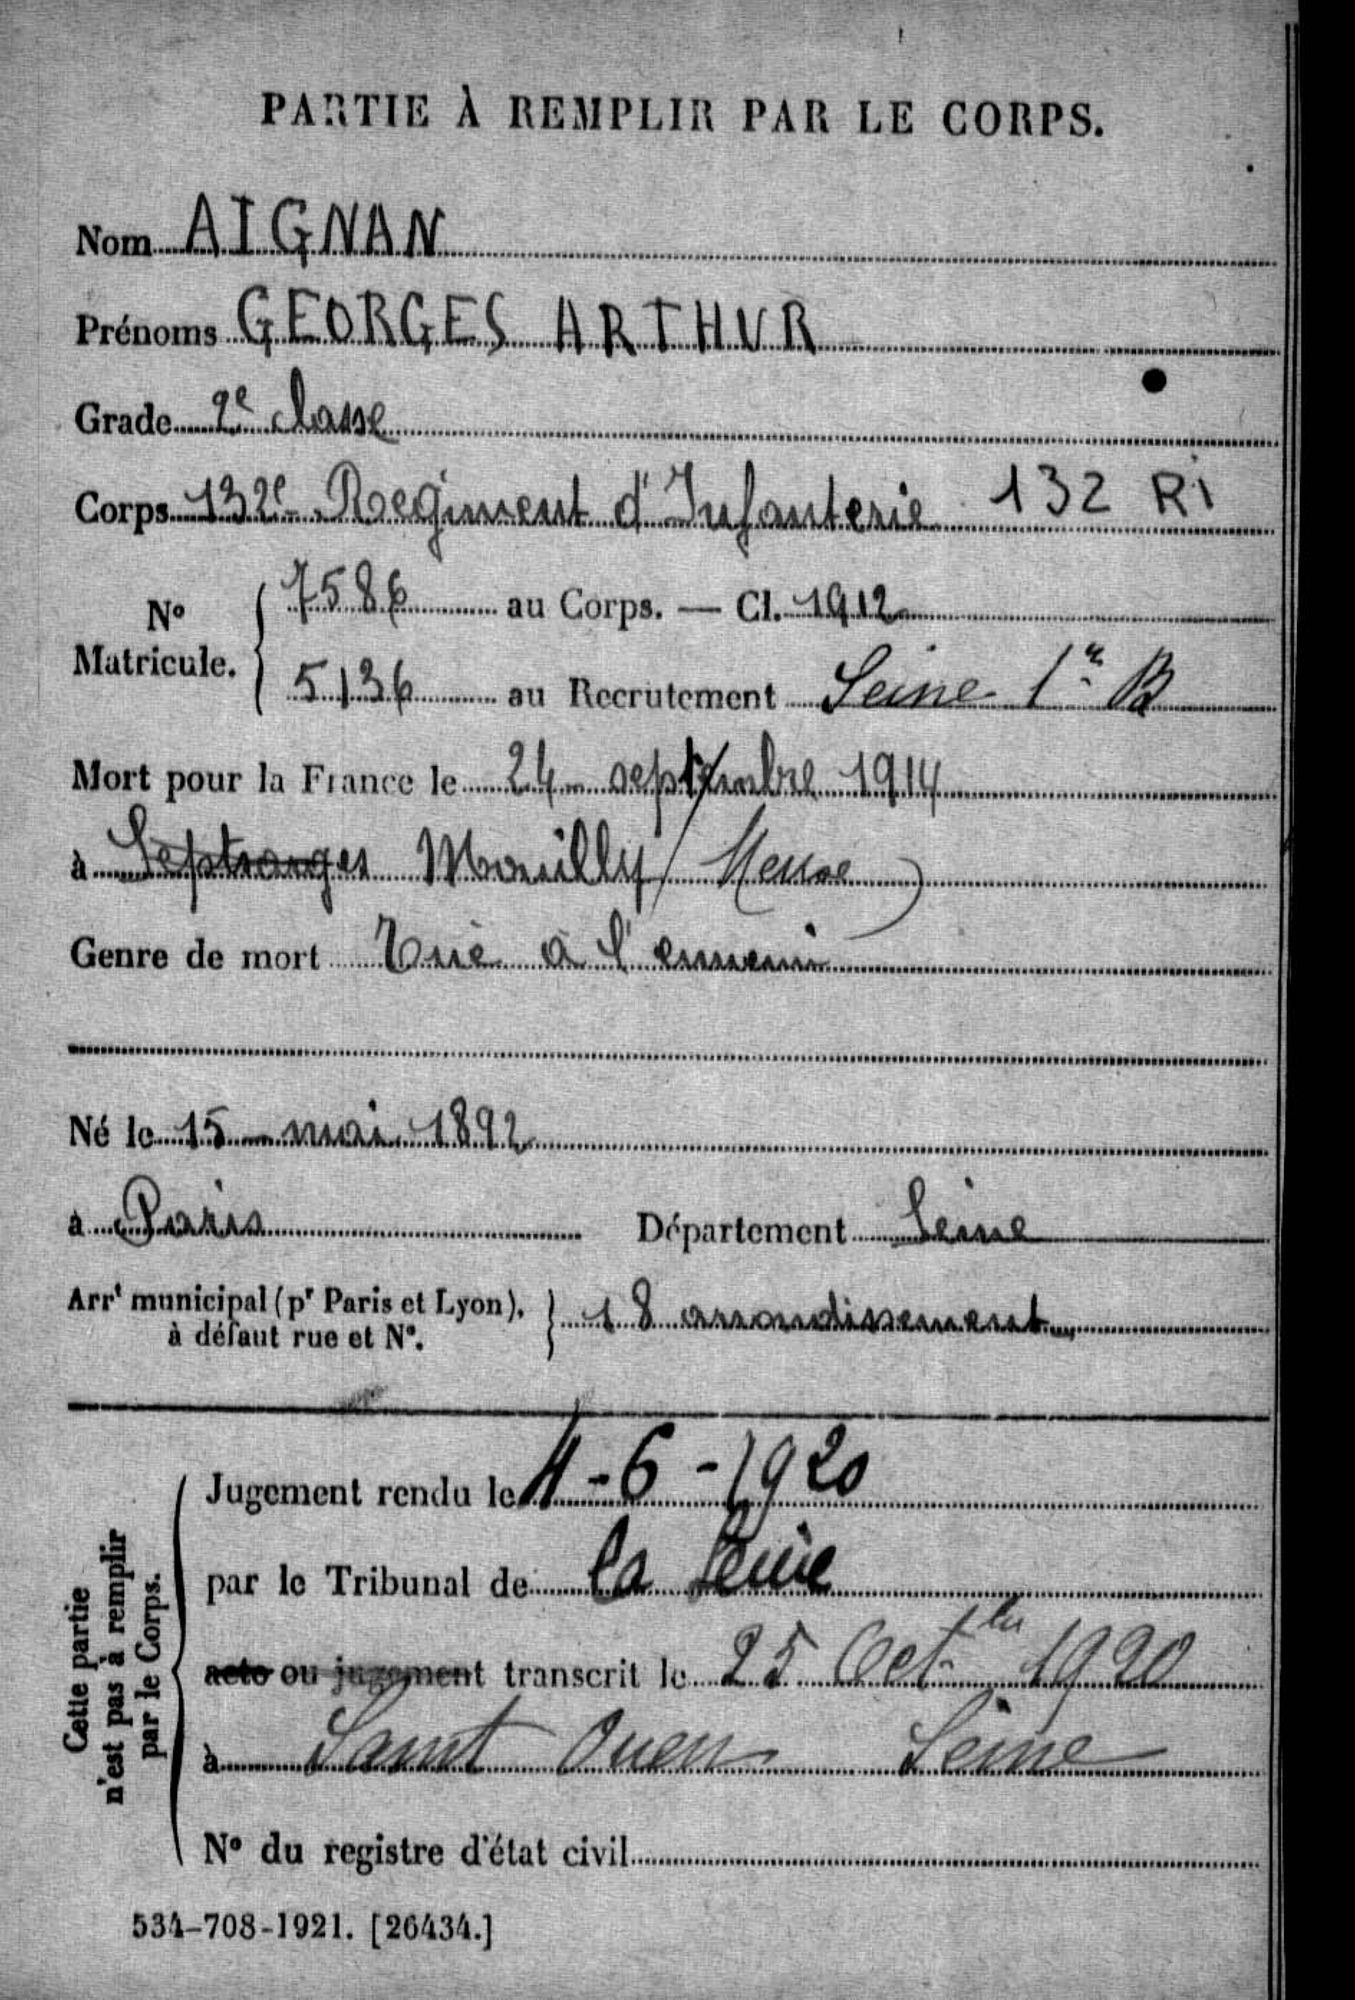 PARTIE À REMPLIR PAR LE CORPS.
Nom AIGNAN
Prénoms GEORGES ARTHUR
Grade 2e classe
Corps 132e Regiment d'Infanterie 132 Ri
N° Matricule.
7586 au Corps. — Cl. 1912
5136 au Recrutement Seine 1er B
Mort pour la France le 24 septembre 1914
à Septsarges Mouilly (Meuse)
Genre de mort Tué à l'ennemi
Né le 15 mai 1892
à Paris Département Seine
Arrt municipal (pr Paris et Lyon), à défaut rue et N°. 18 arrondissement
Cette partie n'est pas à remplir par le Corps.
Jugement rendu le 4-6-1920
par le Tribunal de la Seine
acte ou jugement transcrit le 25 Octbre 1920
à Saint Ouen Seine
N° du registre d'état civil
534-708-1921. [26434.]